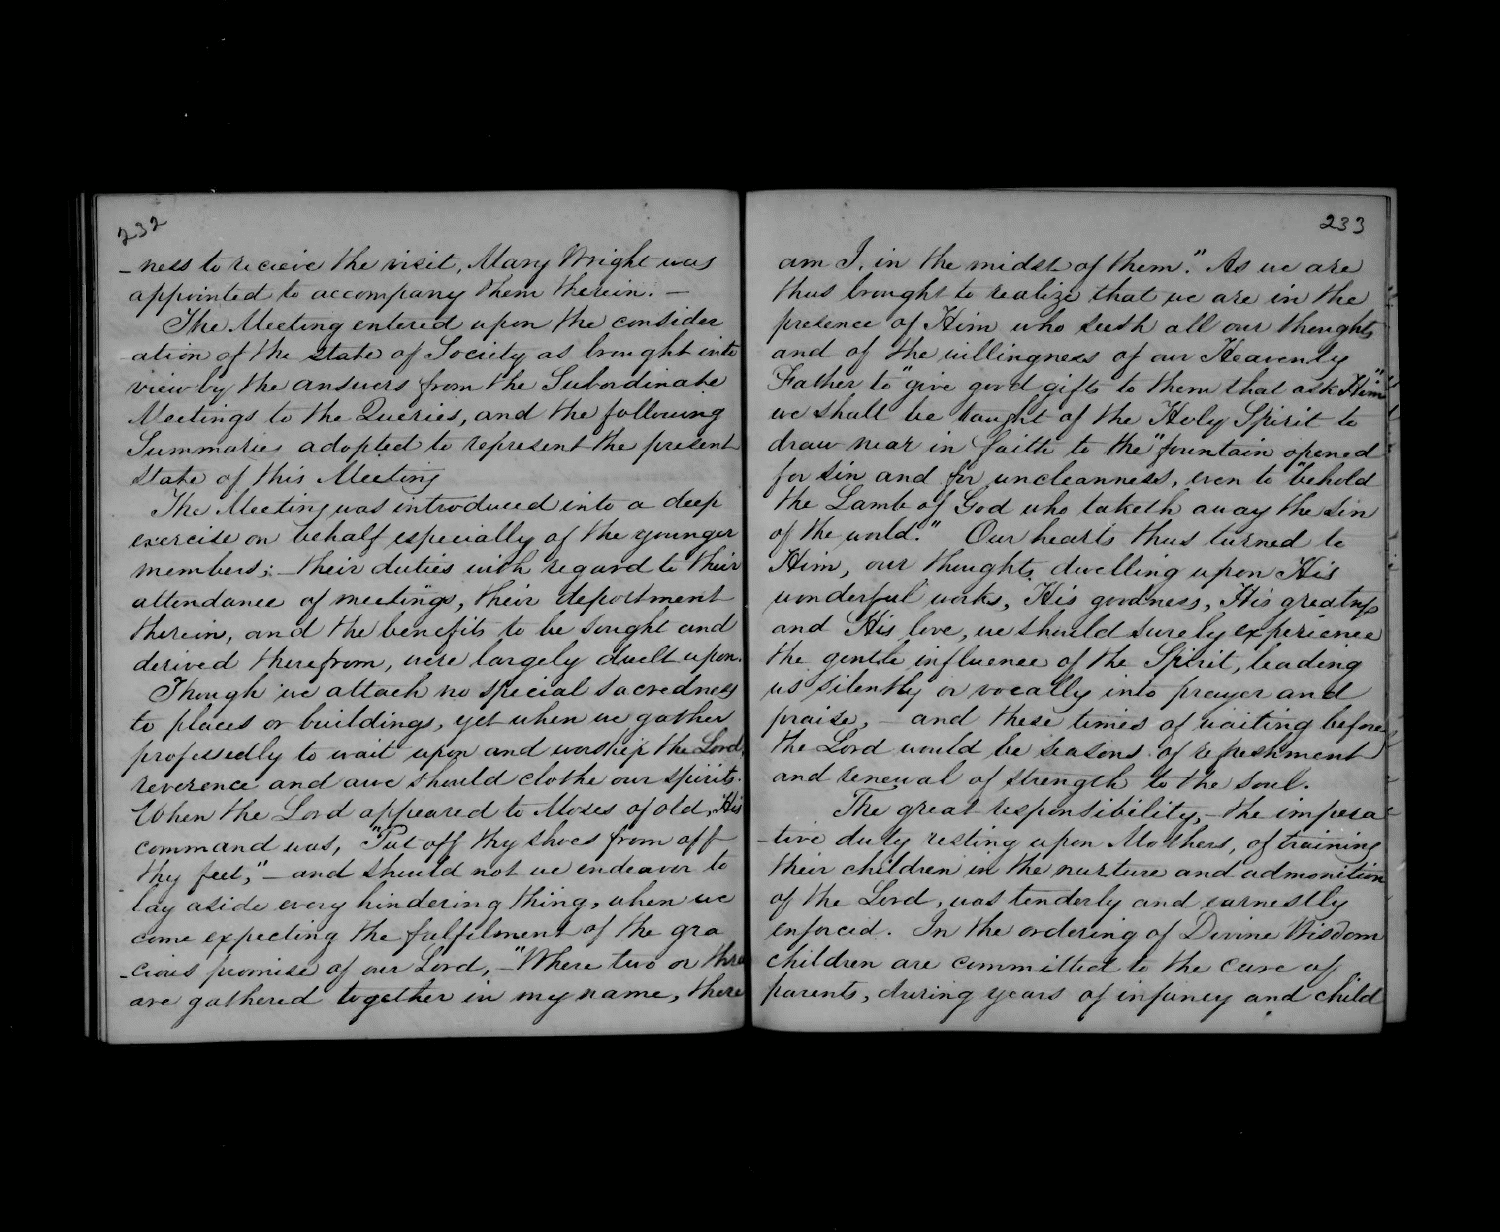 232
-ness to recieve the visit, Mary Wright was
appointed to accompany them therein. —
The Meeting entered upon the consider
ation of the state of Society as brought into
view by the answers from the Subordinate
Meetings to the Queries, and the following
Summaries adopted to represent the present
state of this Meeting
The Meeting was introduced into a deep
exercise on behalf especially of the younger
members; - their duties with regard to their
attendance of meetings, their deportment
therein, and the benefits to be sought and
derived therefrom, were largely dwelt upon.
Though we attach no special sacredness
to places or buildings, yet when we gather
professedly to wait upon and worship the Lord,
reverence and awe should clothe our spirits.
When the Lord appeared to Moses of old, His
command was, "Put off thy shoes from off
thy feet," - and should not we endeavor to
lay aside every hindering thing, when we
come expecting the fulfilment of the gra
-cious promise of our Lord, - "Where two or three
are gathered together in my name, there
233
am I, in the midst of them." As we are
thus brought to realize that we are in the
presence of Him who seeth all our thoughts
and of the willingness of our Heavenly
Father to "give good gifts to them that ask Him"
we shall be taught of the Holy Spirit to
draw near in faith to the "fountain opened
for sin and for uncleanness, even to "behold
the Lamb of God who taketh away the sin
of the world." Our hearts thus turned to
Him, our thoughts dwelling upon His
wonderful works, His goodness, His greatness
and His love, we should surely experience
the gentle influence of the Spirit, leading
us silently or vocally into prayer and
praise, - and these times of waiting before
the Lord would be seasons of refreshment
and renewal of strength to the soul.
The great responsibility, - the impera
-tive duty resting upon Mothers, of training
their children in the nurture and admonition
of the Lord, was tenderly and earnestly
enforced. In the ordering of Divine Wisdom
children are committed to the care of
parents, during years of infancy and child